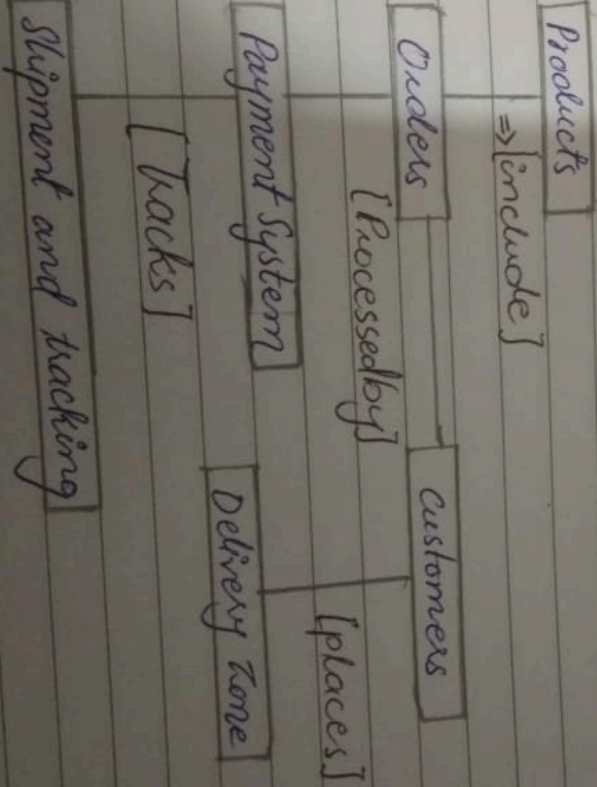 Products
=> [include]
Orders
Customers
[Processedby]
[places]
Payment System
Delivery Zone
[Tracks]
Shipment and tracking